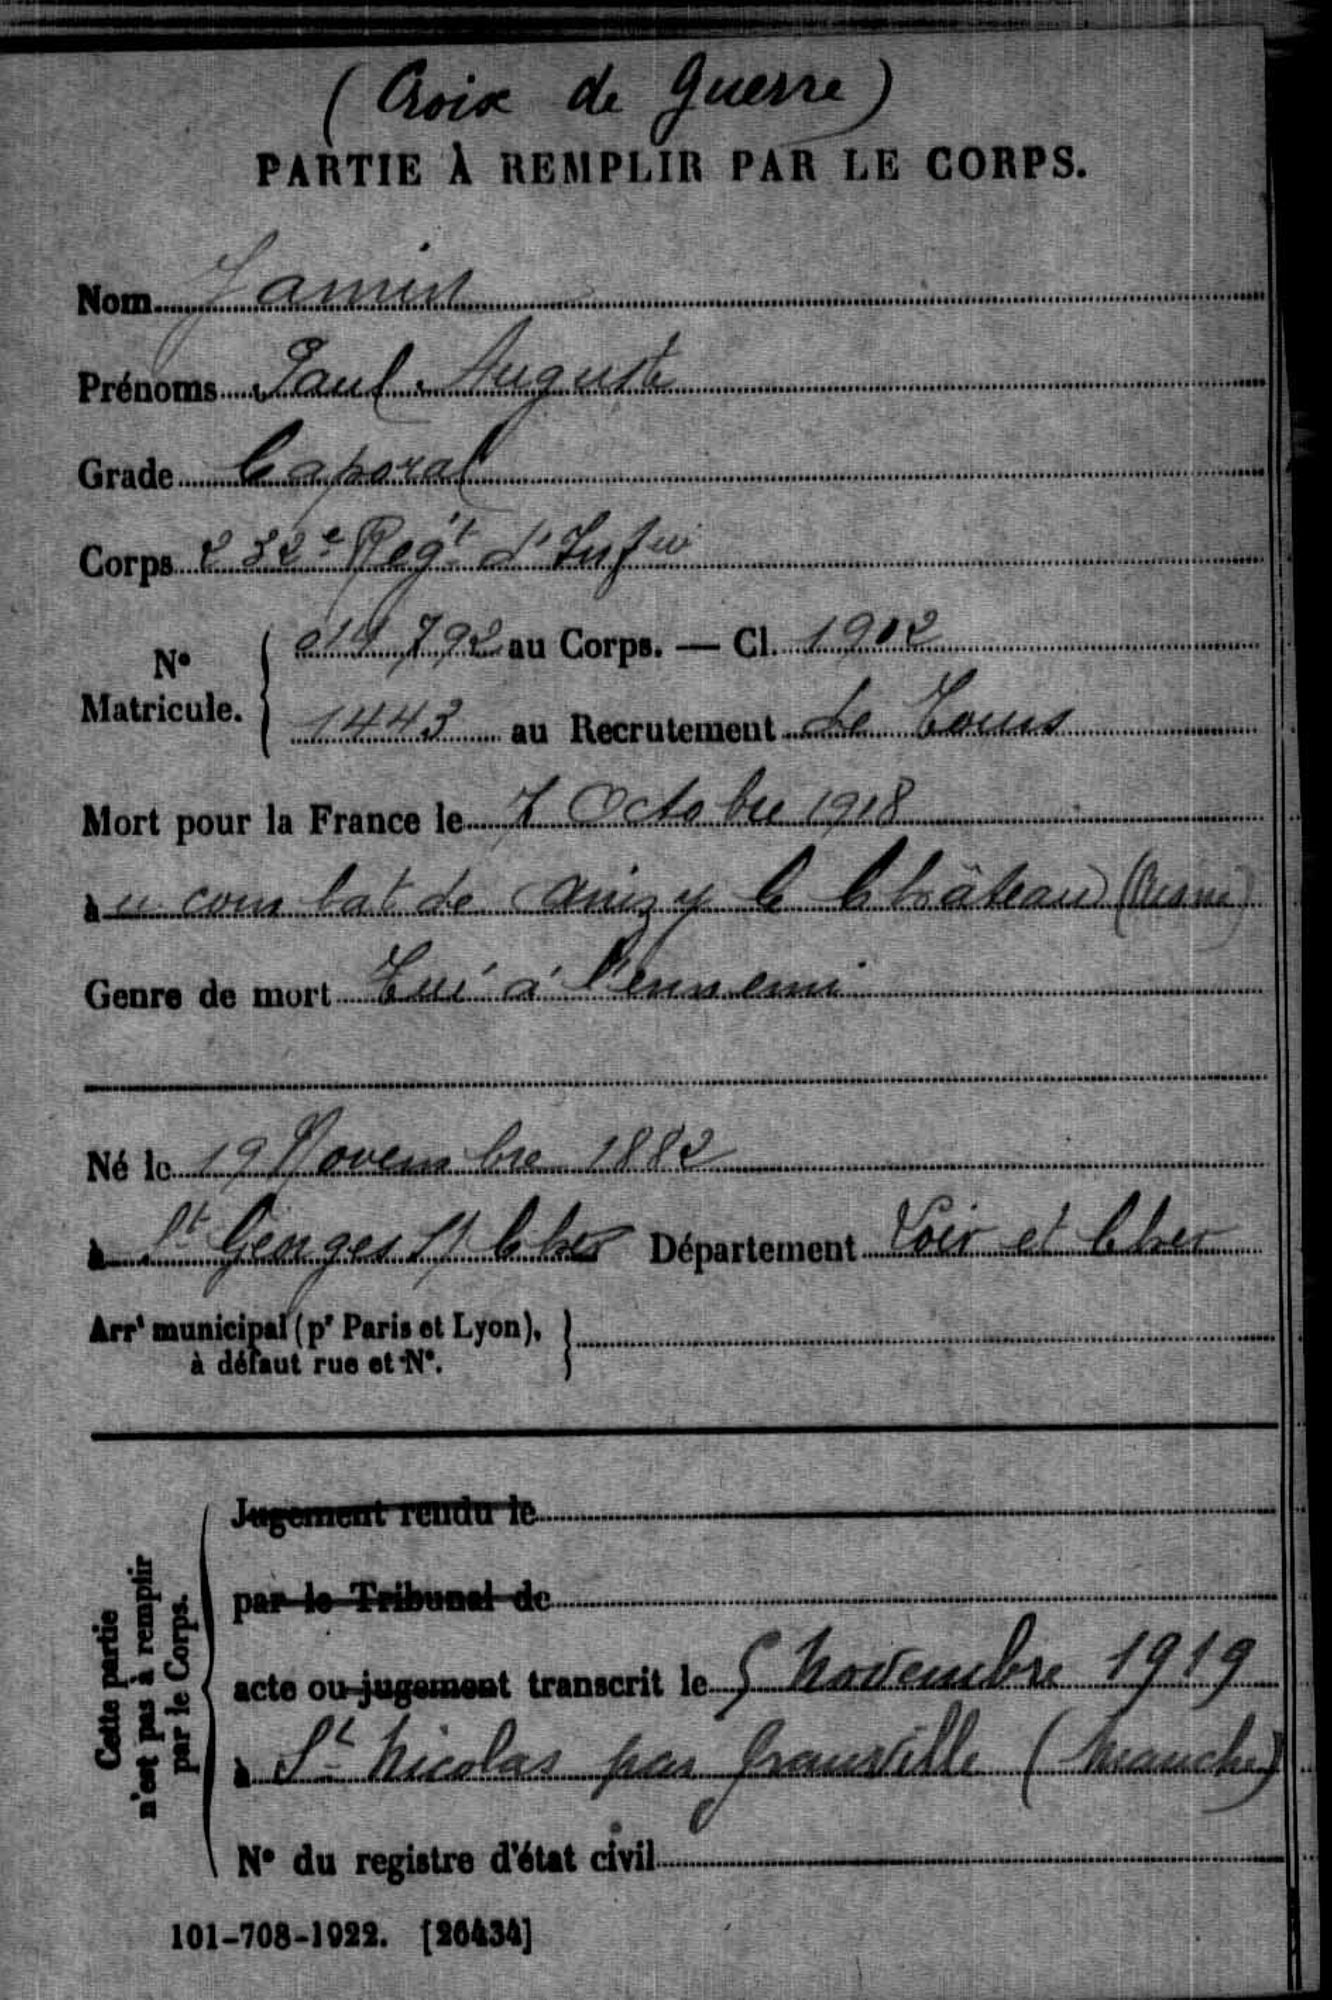 (Croix de Guerre)
PARTIE À REMPLIR PAR LE CORPS.
Nom Jamin
Prénoms Paul Auguste
Grade Caporal
Corps 232e Regt d'Infie
No Matricule. { 014792 au Corps. — Cl. 1902
1443 au Recrutement de Tours
Mort pour la France le 7 Octobre 1918
au combat de Anizy le Château (Aisne)
Genre de mort Tué à l'ennemi
Né le 19 Novembre 1882
à St Georges s/ Cher Département Loir et Cher
Arrt municipal (pr Paris et Lyon), }
à défaut rue et No.
Cette partie
n'est pas à remplir
par le Corps.
Jugement rendu le
par le Tribunal de
acte ou jugement transcrit le 5 Novembre 1919
à St Nicolas par Granville (Manche)
No du registre d'état civil
101-708-1922. [26434]